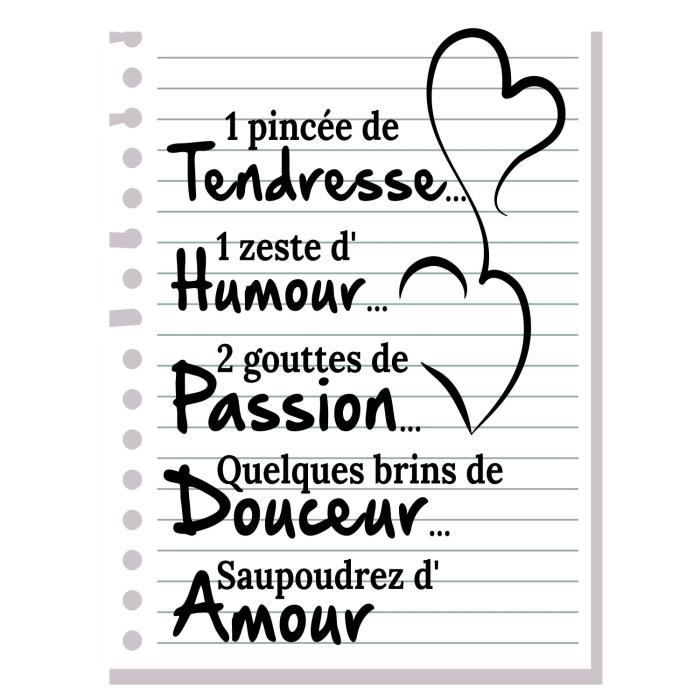 1 pincée de
Tendresse...
1 zeste d'
Humour...
2 gouttes de
Passion...
Quelques brins de
Douceur...
Saupoudrez d'
Amour